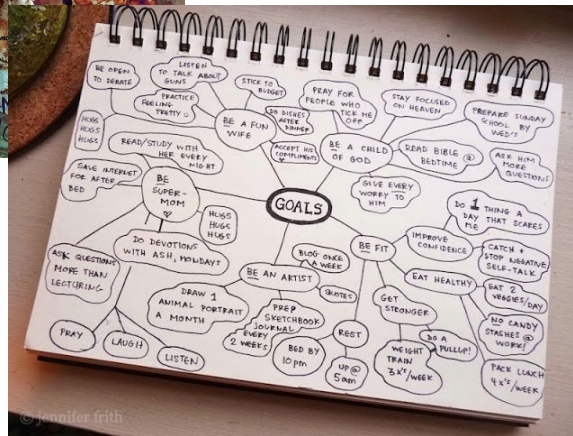 BE OPEN
TO DEBATE
LISTEN
TO TALK ABOUT
GUNS
STICK TO
BUDGET
PRACTICE
FEELING
PRETTY
BE A FUN
WIFE
DO DISHES
AFTER
DINNER
ACCEPT HIS
COMPLIMENTS
PRAY FOR
PEOPLE WHO
TICK ME
OFF
STAY FOCUSED
ON HEAVEN
PREPARE SUNDAY
SCHOOL BY
WED'S
BE A CHILD
OF GOD
READ BIBLE @
BEDTIME
ASK HIM
MORE
QUESTIONS
GIVE EVERY
WORRY TO
HIM
HUGS
HUGS
HUGS
READ/STUDY WITH
HER EVERY
NIGHT
SAVE INTERNET
FOR AFTER
BED
BE
SUPER-
MOM
HUGS
HUGS
HUGS
DO DEVOTIONS
WITH ASH, MONDAYS
ASK QUESTIONS
MORE THAN
LECTURING
PRAY
LAUGH
LISTEN
GOALS
BE AN ARTIST
BLOG ONCE
A WEEK
QUOTES
DRAW 1
ANIMAL PORTRAIT
A MONTH
PREP
SKETCHBOOK
JOURNAL
EVERY
2 WEEKS
BE FIT
IMPROVE
CONFIDENCE
DO 1 THING A
DAY THAT SCARES
ME
CATCH +
STOP NEGATIVE
SELF-TALK
EAT HEALTHY
EAT 2
VEGGIES/DAY
NO CANDY
STASHES @
WORK!
PACK LUNCH
4x's/WEEK
GET
STRONGER
DO A
PULLUP!
WEIGHT
TRAIN
3x's/WEEK
REST
BED BY
10pm
UP @
5am
© jennifer frith